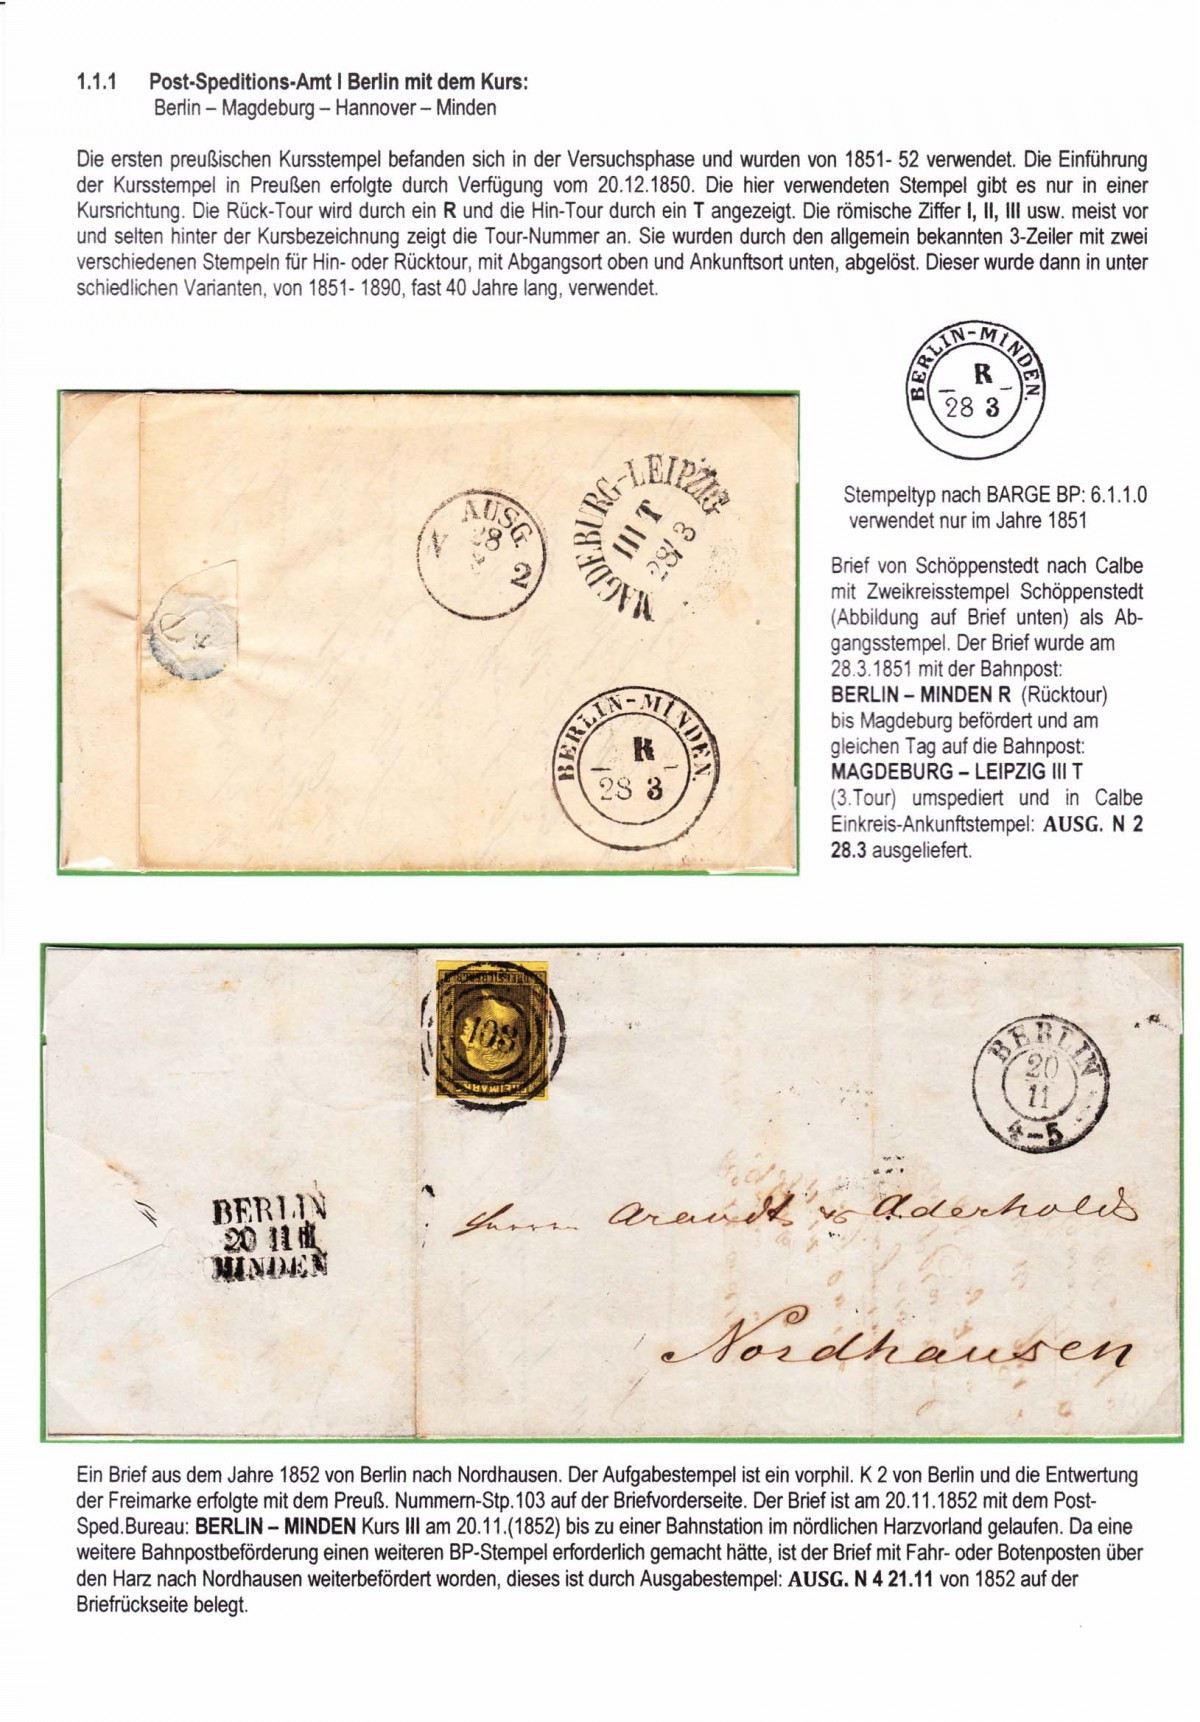 1.1.1 Post-Speditions-Amt I Berlin mit dem Kurs:
Berlin – Magdeburg – Hannover – Minden
Die ersten preußischen Kursstempel befanden sich in der Versuchsphase und wurden von 1851- 52 verwendet. Die Einführung
der Kursstempel in Preußen erfolgte durch Verfügung vom 20.12.1850. Die hier verwendeten Stempel gibt es nur in einer
Kursrichtung. Die Rück-Tour wird durch ein R und die Hin-Tour durch ein T angezeigt. Die römische Ziffer I, II, III usw. meist vor
und selten hinter der Kursbezeichnung zeigt die Tour-Nummer an. Sie wurden durch den allgemein bekannten 3-Zeiler mit zwei
verschiedenen Stempeln für Hin- oder Rücktour, mit Abgangsort oben und Ankunftsort unten, abgelöst. Dieser wurde dann in unter
schiedlichen Varianten, von 1851- 1890, fast 40 Jahre lang, verwendet.
BERLIN-MINDEN.
R
28 3
Stempeltyp nach BARGE BP: 6.1.1.0
verwendet nur im Jahre 1851
MAGDEBURG-LEIPZIG
III T
28/3
AUSG.
28
N 2
BERLIN-MINDEN.
R
28 3
Brief von Schöppenstedt nach Calbe
mit Zweikreisstempel Schöppenstedt
(Abbildung auf Brief unten) als Ab-
gangsstempel. Der Brief wurde am
28.3.1851 mit der Bahnpost:
BERLIN – MINDEN R (Rücktour)
bis Magdeburg befördert und am
gleichen Tag auf die Bahnpost:
MAGDEBURG – LEIPZIG III T
(3.Tour) umspediert und in Calbe
Einkreis-Ankunftstempel: AUSG. N 2
28.3 ausgeliefert.
103
FREIMARKE
BERLIN
20
11
4-5
BERLIN
20 11 III
MINDEN
Herrn Arandt & Aderhold
Nordhausen
Ein Brief aus dem Jahre 1852 von Berlin nach Nordhausen. Der Aufgabestempel ist ein vorphil. K 2 von Berlin und die Entwertung
der Freimarke erfolgte mit dem Preuß. Nummern-Stp.103 auf der Briefvorderseite. Der Brief ist am 20.11.1852 mit dem Post-
Sped.Bureau: BERLIN – MINDEN Kurs III am 20.11.(1852) bis zu einer Bahnstation im nördlichen Harzvorland gelaufen. Da eine
weitere Bahnpostbeförderung einen weiteren BP-Stempel erforderlich gemacht hätte, ist der Brief mit Fahr- oder Botenposten über
den Harz nach Nordhausen weiterbefördert worden, dieses ist durch Ausgabestempel: AUSG. N 4 21.11 von 1852 auf der
Briefrückseite belegt.